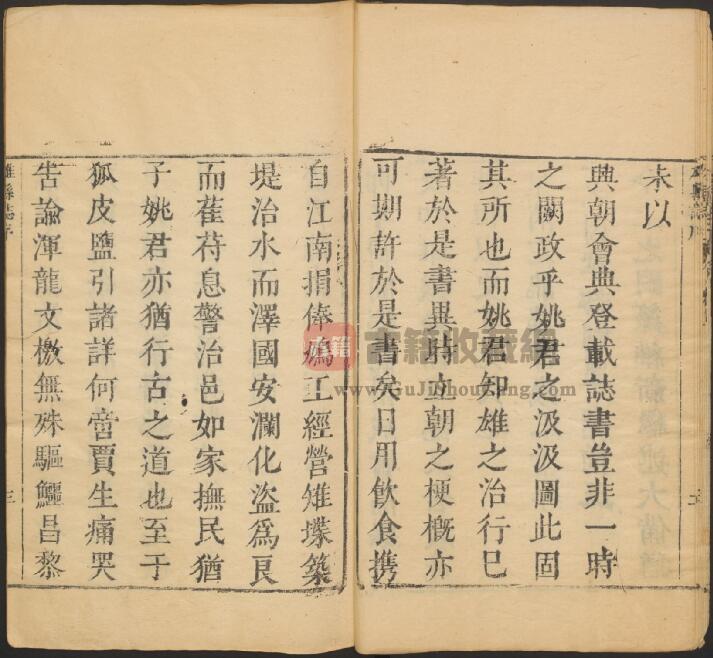 未以
典朝會典登載誌書豈非一時
之闕政乎姚君之汲汲圖此固
其所也而姚君知雄之治行巳
著於是書異時立朝之梗概亦
可期許於是書矣日用飲食攜
自江南捐俸鳩工經營雉堞築
堤治水而澤國安瀾化盜爲良
而萑苻息警治邑如家撫民猶
子姚君亦猶行古之道也至于
狐皮鹽引諸詳何啻賈生痛哭
告諭渾龍文檄無殊驅鱷昌黎
雄縣誌序
三
書籍收藏網
www.GuJiShouCang.com